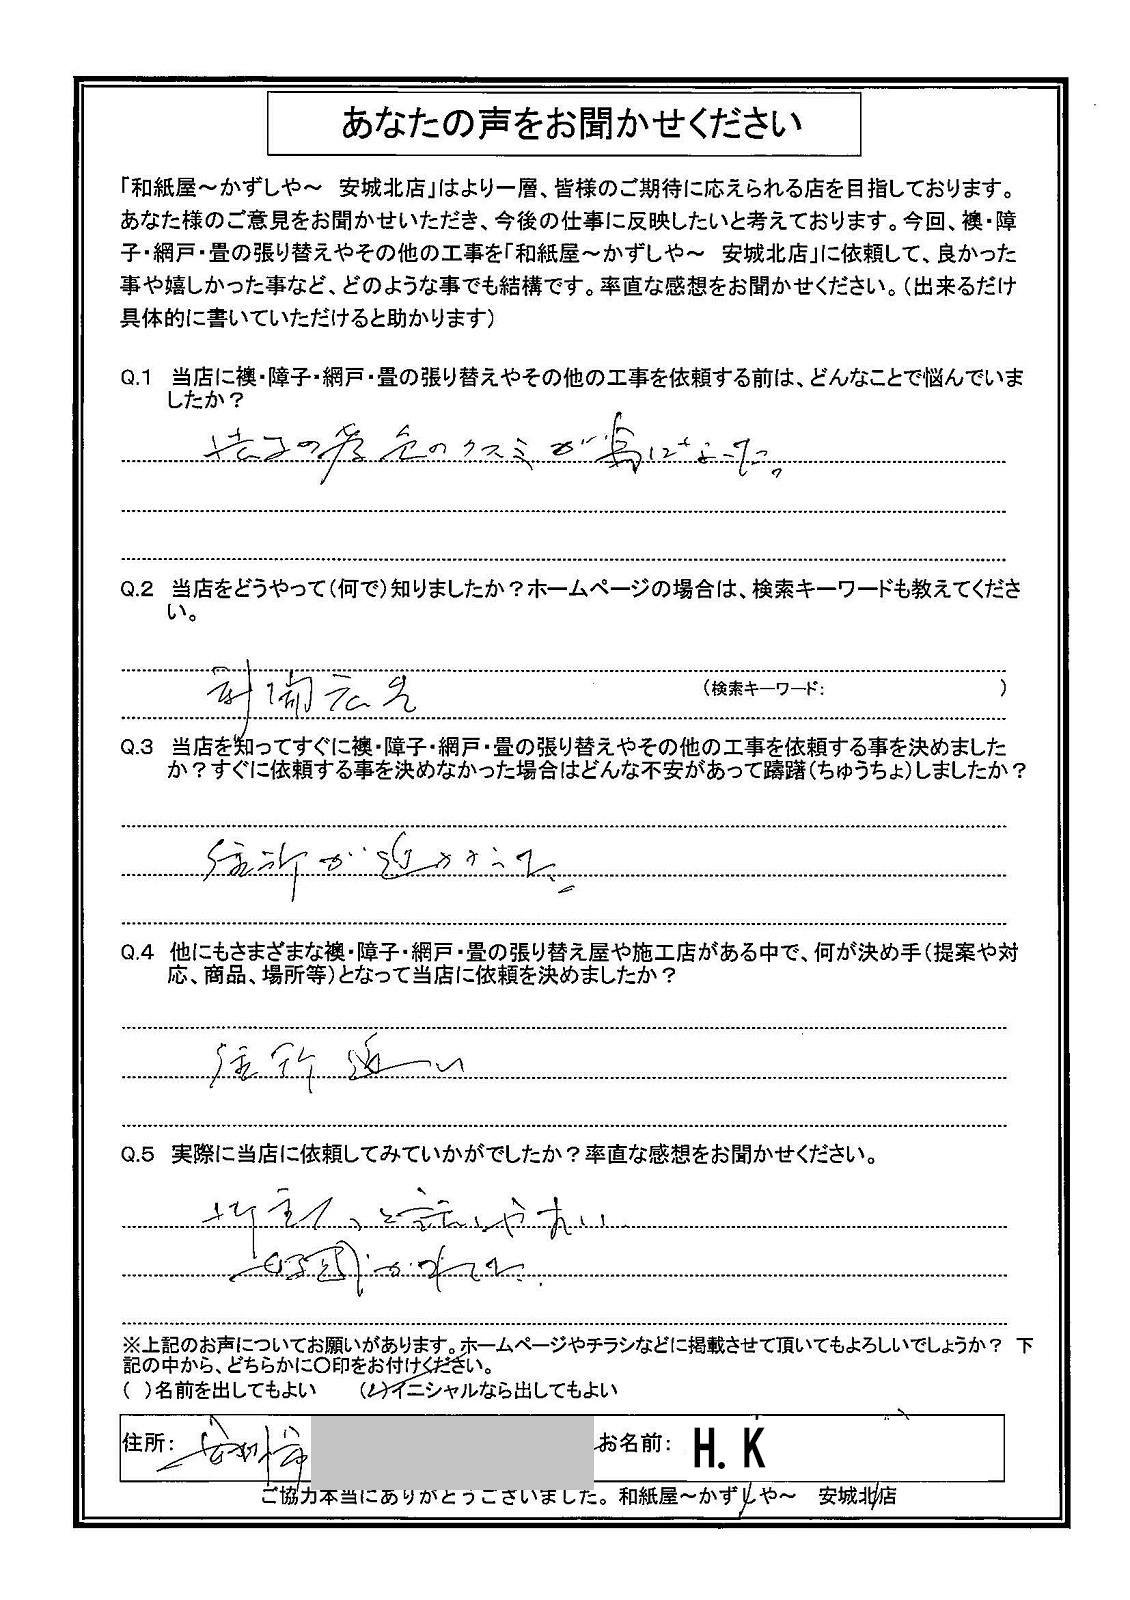 あなたの声をお聞かせください
「和紙屋～かずしや～　安城北店」はより一層、皆様のご期待に応えられる店を目指しております。
あなた様のご意見をお聞かせいただき、今後の仕事に反映したいと考えております。今回、襖・障
子・網戸・畳の張り替えやその他の工事を「和紙屋～かずしや～　安城北店」に依頼して、良かった
事や嬉しかった事など、どのような事でも結構です。率直な感想をお聞かせください。（出来るだけ
具体的に書いていただけると助かります）
Q.1　当店に襖・障子・網戸・畳の張り替えやその他の工事を依頼する前は、どんなことで悩んでいま
したか？
色のクスミが気になった。
Q.2　当店をどうやって（何で）知りましたか？ホームページの場合は、検索キーワードも教えてくださ
い。
新聞広告
（検索キーワード：　　　　）
Q.3　当店を知ってすぐに襖・障子・網戸・畳の張り替えやその他の工事を依頼する事を決めました
か？すぐに依頼する事を決めなかった場合はどんな不安があって躊躇（ちゅうちょ）しましたか？
住所が近かった。
Q.4　他にもさまざまな襖・障子・網戸・畳の張り替え屋や施工店がある中で、何が決め手（提案や対
応、商品、場所等）となって当店に依頼を決めましたか？
住所近い
Q.5　実際に当店に依頼してみていかがでしたか？率直な感想をお聞かせください。
話しやすい
好感がもてた。
※上記のお声についてお願いがあります。ホームページやチラシなどに掲載させて頂いてもよろしいでしょうか？　下
記の中から、どちらかに〇印をお付けください。
（　）名前を出してもよい　　（レ）イニシャルなら出してもよい
住所：安城市　お名前：H.K
ご協力本当にありがとうございました。和紙屋～かずしや～　安城北店